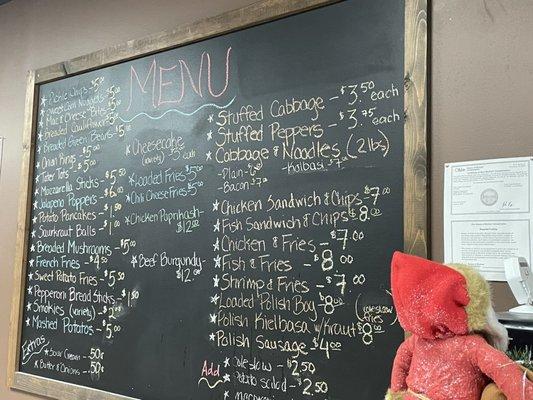 MENU
Pickle Chips - $5.00
Sweet Corn Nuggets $5.00
Mac & Cheese Bites $5.00
Breaded Cauliflower $5
Breaded Green Beans $5
Onion Rings - $5.00
Tater Tots - $5.00
Mozzarella Sticks - $6.50
Jalapeno Poppers - $6.00
Potato Pancakes - $1.50
Saurkraut Balls - $1.00
Breaded Mushrooms - $5.00
French Fries - $4.50
Sweet Potato Fries - $5.00
Pepperoni Bread Sticks - $1.50
Smokies (variety) - $
Mashed Potatos - $5.00
Extras
Sour Cream - 50¢
Butter & Onions - 50¢
Cheesecake
(variety) $5 each
Loaded Fries $5.00
Chili Cheese Fries $5.00
Chicken Paprikash -
$12.00
Beef Burgundy -
$12.00
Stuffed Cabbage - $3.50 each
Stuffed Peppers - $3.75 each
Cabbage & Noodles (2 lbs)
Plain - $6.00 Kilbasi $7.00
Bacon - $7.00
Chicken Sandwich & Chips - $7.00
Fish Sandwich & Chips $8.00
Chicken & Fries - $7.00
Fish & Fries - $8.00
Shrimp & Fries - $7.00
Loaded Polish Boy - $8.00 (coleslaw fries)
Polish Kielbasa w/Kraut $8.00
Polish Sausage $4.00
Add
Coleslaw - $2.50
Potato Salad - $2.50